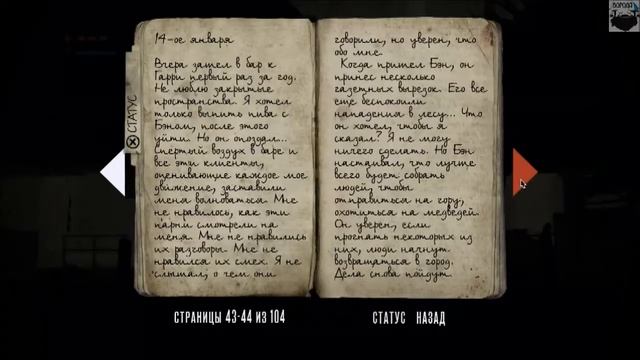 БОРОДА
14-ое января
Вчера зашел в бар к
Гарри первый раз за год.
Не люблю закрытые
пространства. Я хотел
только выпить пива с
Бэном, после этого
уйти. Но он опоздал...
Спертый воздух в баре и
все эти клиенты,
оценивающие каждое мое
движение, заставили
меня волноваться. Мне
не нравилось, как эти
парни смотрели на
меня. Мне не нравились
их разговоры. Мне не
нравился их смех. Я не
слышал, о чем они
говорили, но уверен, что
обо мне.
Когда пришел Бэн, он
принес несколько
газетных вырезок. Его все
еще беспокоили
нападения в лесу... Что
он хотел, чтобы я
сказал? Я не могу
ничего сделать. Но Бэн
настаивал, что лучше
всего будет собрать
людей, чтобы
отправиться на гору,
охотиться на медведей.
Он уверен, если
прогнать некоторых из
них, люди начнут
возвращаться в город.
Дела снова пойдут.
X СТАТУС
СТРАНИЦЫ 43-44 ИЗ 104
СТАТУС НАЗАД